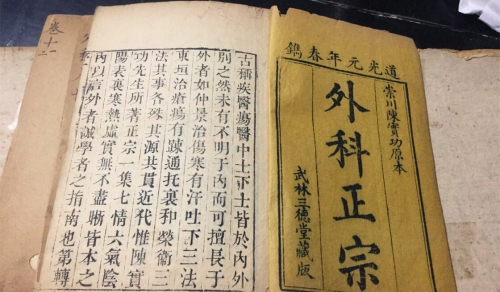 道光元年春鐫
崇川陳實功原本
外科正宗
武林三德堂藏版
古稱疾醫瘍醫中士下士皆於內外
別之然未有不明于內而可擅長于
外者如仲景治傷寒有汗吐下三法
東垣治瘡瘍有疎通托裏和榮衛三
法其事各殊其源共貫近代惟陳實
功先生所著正宗一集七情六氣陰
陽表裏寒熱虛實無不盡晰皆本之
內以外者誠學者之指南也第轉
卷十一